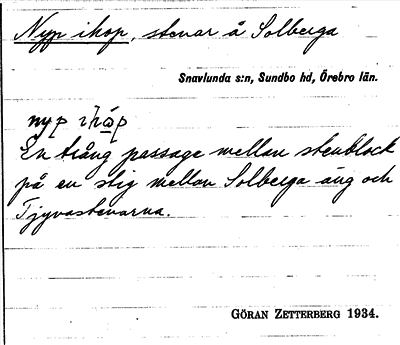 Nyp ihop, stenar å Solberga
Snavlunda s:n, Sundbo hd, Örebro län.
nyp ihop
En trång passage mellan stenblock
på en stig mellan Solberga äng och
Tjyvastenarna.
GÖRAN ZETTERBERG 1934.